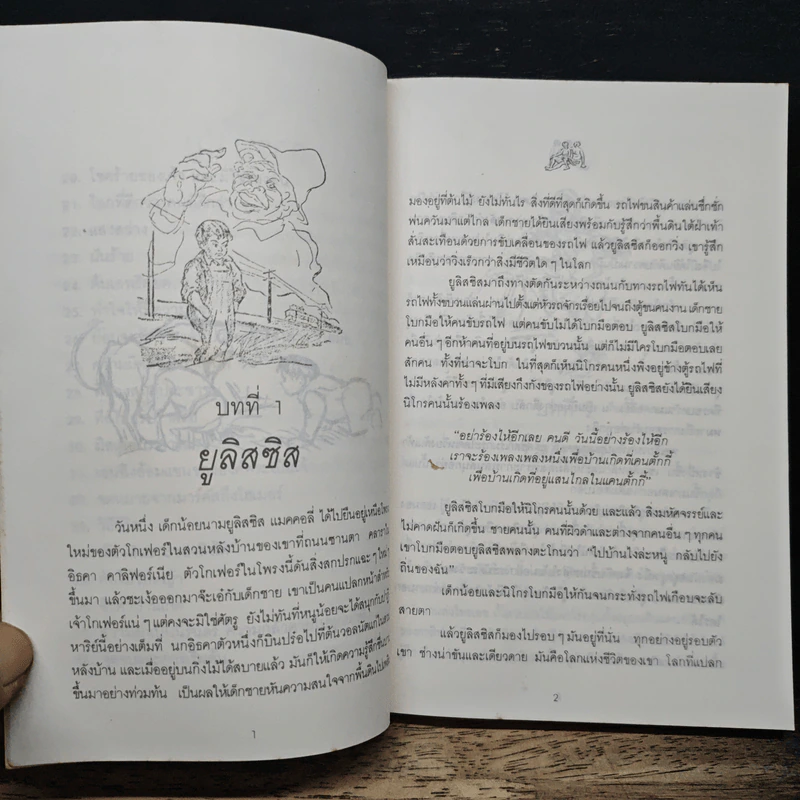 บทที่ 1
ยูลิสซิส
วันหนึ่ง เด็กน้อยนามยูลิสซิส แมคคอลี่ ได้ไปยืนอยู่เหนือโพรง
ใหม่ของตัวโกเฟอร์ในสวนหลังบ้านของเขาที่ถนนซานตา คลารา
อิธคา คาลิฟอร์เนีย ตัวโกเฟอร์ในโพรงนี้ดันสิ่งสกปรกแฉะ ๆ ใหม่ ๆ
ขึ้นมา แล้วชะเง้อออกมาจ๊ะเอ๋กับเด็กชาย เขาเป็นคนแปลกหน้าสำหรับ
เจ้าโกเฟอร์แน่ ๆ แต่คงจะมิใช่ศัตรู ยังไม่ทันที่หนูน้อยจะได้สนุกกับ
หาริย์นี้อย่างเต็มที่ นกอิธคาตัวหนึ่งก็บินปร๋อไปที่ต้นวอลนัตแก่ใน
หลังบ้าน และเมื่ออยู่บนกิ่งไม้ได้สบายแล้ว มันก็ให้เกิดความรู้สึกชื่นบาน
ขึ้นมาอย่างท่วมท้น เป็นผลให้เด็กชายหันความสนใจจากพื้นดินไป
1
มองอยู่ที่ต้นไม้ ยังไม่ทันไร สิ่งที่ดีที่สุดก็เกิดขึ้น รถไฟขนสินค้าแล่นชึกชัก
พ่นควันมาแต่ไกล เด็กชายได้ยินเสียงพร้อมกับรู้สึกว่าพื้นดินใต้ฝ่าเท้า
สั่นสะเทือนด้วยการขับเคลื่อนของรถไฟ แล้วยูลิสซิสก็ออกวิ่ง เขารู้สึก
เหมือนว่าวิ่งเร็วกว่าสิ่งมีชีวิตใด ๆ ในโลก
ยูลิสซิสมาถึงทางตัดกันระหว่างถนนกับทางรถไฟทันได้เห็น
รถไฟทั้งขบวนแล่นผ่านไปตั้งแต่หัวรถจักรเรื่อยไปจนถึงตู้ขนคนงาน เด็กชาย
โบกมือให้คนขับรถไฟ แต่คนขับไม่ได้โบกมือตอบ ยูลิสซิสโบกมือให้
คนอื่น ๆ อีกห้าคนที่อยู่บนรถไฟขบวนนั้น แต่ก็ไม่มีใครโบกมือตอบเลย
สักคน ทั้งที่น่าจะโบก ในที่สุดก็เห็นนิโกรคนหนึ่งพิงอยู่ข้างตู้รถไฟที่
ไม่มีหลังคาทั้ง ๆ ที่มีเสียงกึงกังของรถไฟอย่างนั้น ยูลิสซิสยังได้ยินเสียง
นิโกรคนนั้นร้องเพลง
“อย่าร้องไห้อีกเลย คนดี วันนี้อย่างร้องไห้อีก
เราจะร้องเพลงเพลงหนึ่งเพื่อบ้านเกิดที่เคนตั้กกี้
เพื่อบ้านเกิดที่อยู่แสนไกลในแคนตั้กกี้”
ยูลิสซิสโบกมือให้นิโกรคนนั้นด้วย และแล้ว สิ่งมหัศจรรย์และ
ไม่คาดฝันก็เกิดขึ้น ชายคนนั้น คนที่ผิวดำและต่างจากคนอื่น ๆ ทุกคน
เขาโบกมือตอบยูลิสซิสพลางตะโกนว่า “ไปบ้านไงล่ะหนู กลับไปยัง
ถิ่นของฉัน”
เด็กน้อยและนิโกรโบกมือให้กันจนกระทั่งรถไฟเกือบจะลับ
สายตา
แล้วยูลิสซิสก็มองไปรอบ ๆ มันอยู่ที่นั่น ทุกอย่างอยู่รอบตัว
เขา ช่างน่าขันและเดียวดาย มันคือโลกแห่งชีวิตของเขา โลกที่แปลก
2